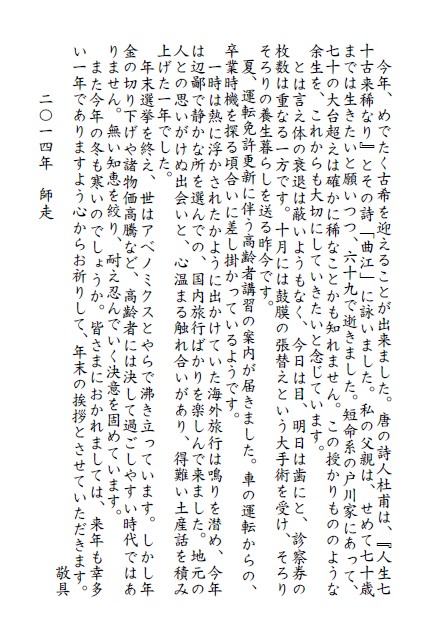 今年、めでたく古希を迎えることが出来ました。唐の詩人杜甫は、『人生七
十古来稀なり』とその詩「曲江」に詠いました。私の父親は、せめて七十歳
までは生きたいと願いつつ、六十九で逝きました。短命系の戸川家にあって、
七十の大台超えは確かに稀なことかも知れません。この授かりもののような
余生を、これからも大切にしていきたいと念じています。
とは言え体の衰退は蔽いようもなく、今日は目、明日は歯にと、診察券の
枚数は重なる一方です。十月には鼓膜の張替えという大手術を受け、そろり
そろりの養生暮らしを送る昨今です。
夏、運転免許更新に伴う高齢者講習の案内が届きました。車の運転からの、
卒業時機を探る頃合いに差し掛かっているようです。
一時は熱に浮かされたかように出かけていた海外旅行は鳴りを潜め、今年
は辺鄙で静かな所を選んでの、国内旅行ばかりを楽しんで来ました。地元の
人との思いがけぬ出会いと、心温まる触れ合いがあり、得難い土産話を積み
上げた一年でした。
年末選挙を終え、世はアベノミクスとやらで沸き立っています。しかし年
金の切り下げや諸物価高騰など、高齢者には決して過ごしやすい時代ではあ
りません。無い知恵を絞り、耐え忍んでいく決意を固めています。
また今年の冬も寒いのでしょうか。皆さまにおかれましては、来年も幸多
い一年でありますよう心からお祈りして、年末の挨拶とさせていただきます。
敬具
二〇一四年 師走